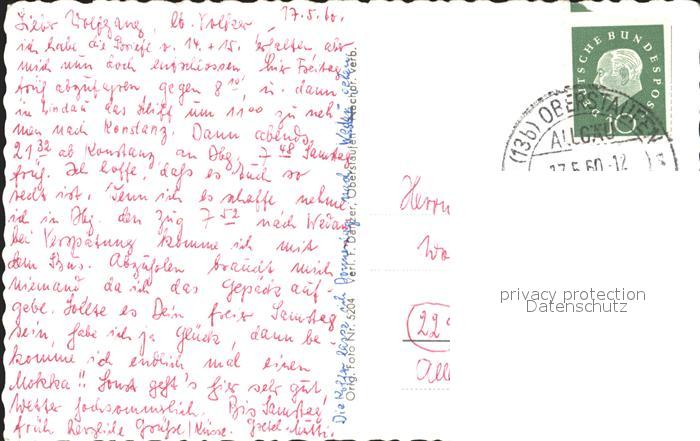 17.5.60.
Lieber Wolfgang, lb. Volker
ich habe die Briefe v. 14. + 15. erhalten aber
mich nun doch entschlossen hier Freitag
früh abzufahren, gegen 8 u. dann
in Lindau das Schiff um 11 00 zu neh-
men nach Konstanz. Dann abends
21 32 ab Konstanz an Dbg. 7 48 Samstag
früh. Ich hoffe, dass es Euch so
recht ist. Wenn ich es schaffe nehme
ich in Dbg. den Zug 7 52 nach Wedau
bei Verspätung komme ich mit
dem Bus. Abzuholen braucht mich
niemand da ich das Gepäck auf-
gebe. Sollte es Dein freier Samstag
sein, habe ich ja Glück, dann be-
komme ich endlich mal einen
Mokka!! Sonst geht's hier sehr gut,
Wetter hochsommerlich. Bis Samstag
früh herzliche Grüße/Küsse. Gretel-Mutti.
Die Koffer lasse ich Donnerstag nach Wedau gehen
Orig. Foto Nr. 5204 Verl. F. Danzer, Oberstaufen Nachdr. verb.
DEUTSCHE BUNDESPOST
10
(13b) OBERSTAUFEN
ALLGÄU
17.5.60.-12
Herrn
Wo
(22
privacy protection
Datenschutz